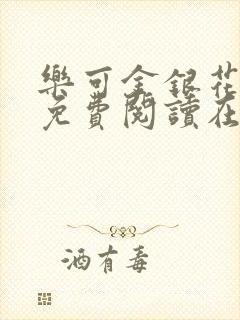 樂可金銀花
免費閱讀在
酒有毒